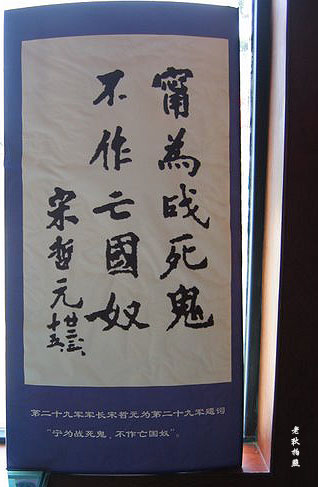 甯為战死鬼
不作亡國奴
宋哲元
第二十九军军长宋哲元为第二十九军题词
“宁为战死鬥，不作亡国奴”。